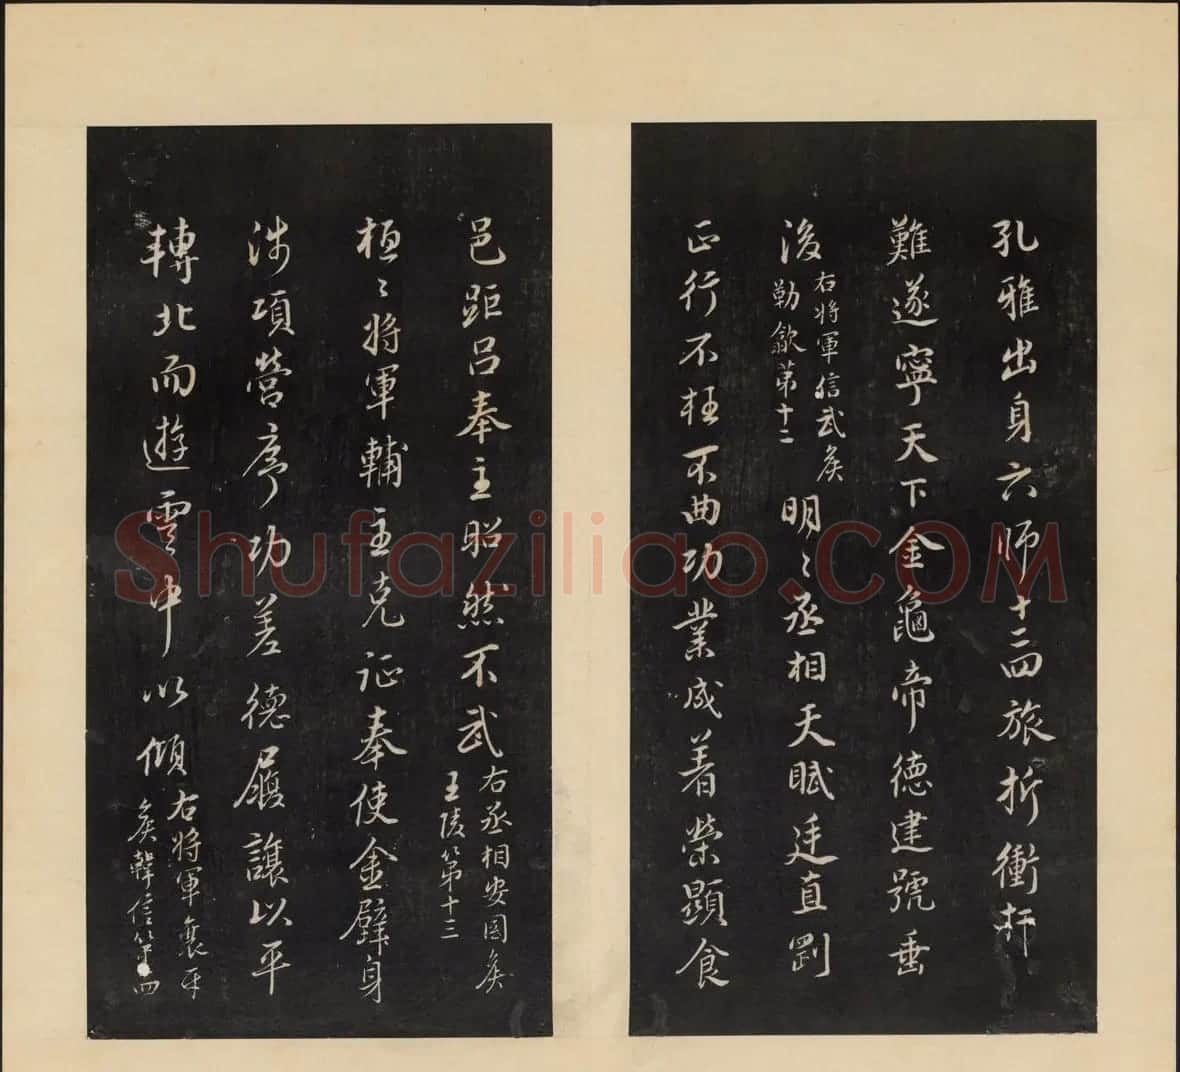 孔雅出身六師十二四旅折衝扞
難遂寧天下金龜帝德建號垂
後
右將軍信武矦
勒歙第十二
明〻丞相天賦廷直剛
正行不枉不曲功業成著榮顯食
邑距呂奉主昭然不武
右丞相安國矦
王陵第十三
桓〻將軍輔主克征奉使金壁身
涉項營序功差德履讓以平
轉北而遊雲中以傾
右將軍襄平
矦韓信第四
Shufaziliao.COM